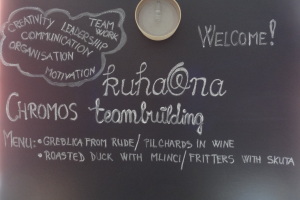 CREATIVITY
LEADERSHIP
TEAM
WORK
COMMUNICATION
ORGANISATION
MOTIVATION
WELCOME!
kuha@na
CHROMOS teambuilding
MENU: • GREBLICA FROM RUDE / PILCHARDS IN WINE
• ROASTED DUCK WITH MLINCI / FRITTERS WITH SKUTA